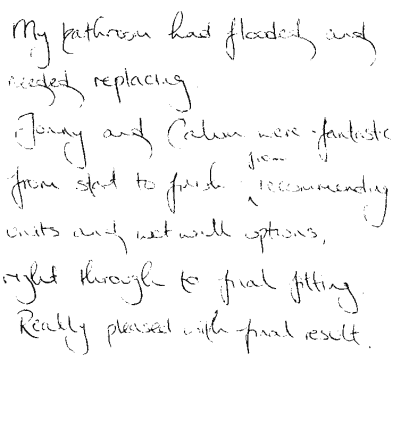 My bathroom had flooded and
needed replacing.
Jonny and Calum were fantastic
from start to finish from recommending
units and wet wall options,
right through to final fitting.
Really pleased with final result.